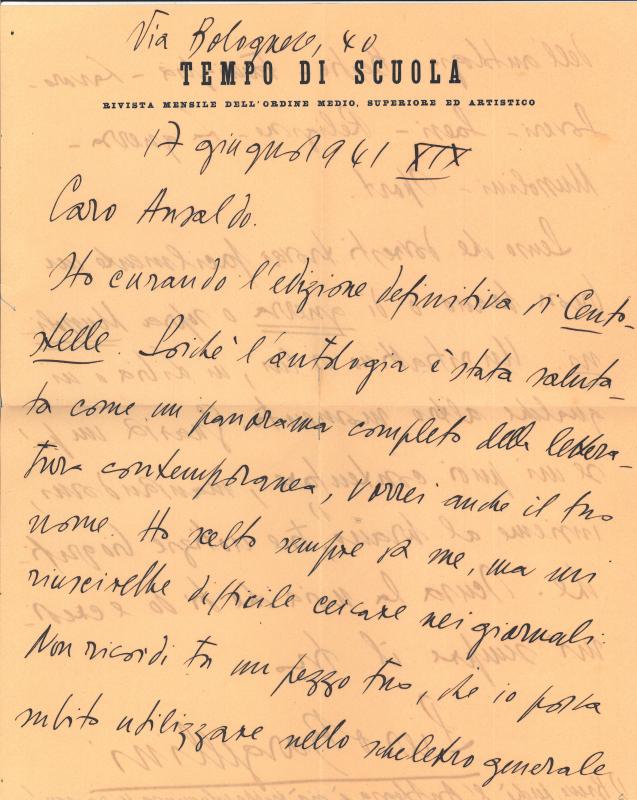 Via Bolognese, 40
TEMPO DI SCUOLA
RIVISTA MENSILE DELL'ORDINE MEDIO, SUPERIORE ED ARTISTICO
17 giugno 1941 XIX
Caro Ansaldo.
Sto curando l'edizione definitiva di Cento-
stelle. Poiché l'antologia è stata saluta-
ta come un panorama completo della lettera-
tura contemporanea, vorrei anche il tuo
nome. Ho scelto sempre da me, ma mi
riuscirebbe difficile cercare nei giornali.
Non ricordi tu un pezzo tuo, che io possa
subito utilizzare nello scheletro generale